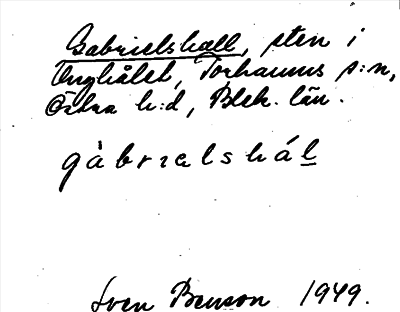 Gabrielshall, sten i
Unghålet, Torhamns s:n,
Östra h:d, Blek. län.
gàbrıɛlshál
Sven Benson 1949.